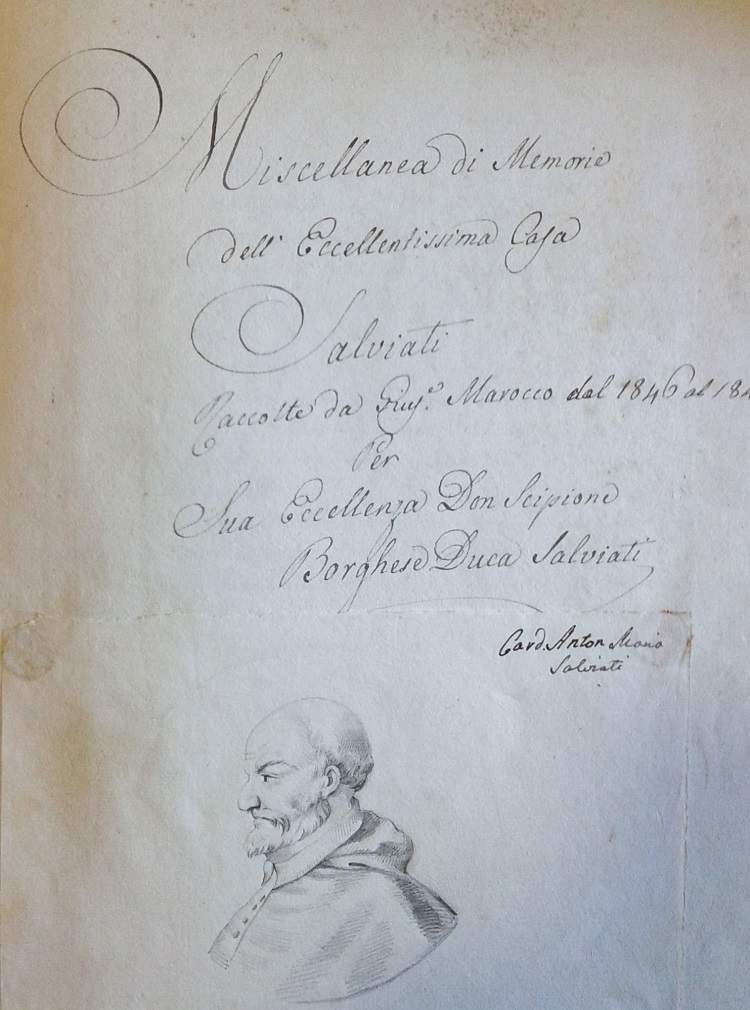 Miscellanea di Memorie
dell' Eccellentissima Casa
Salviati
Raccolte da Marocco dal 1846 al 184
Per
Sua Eccellenza Don Scipione
Borghese Duca Salviati
Card. Anton Maria
Salviati